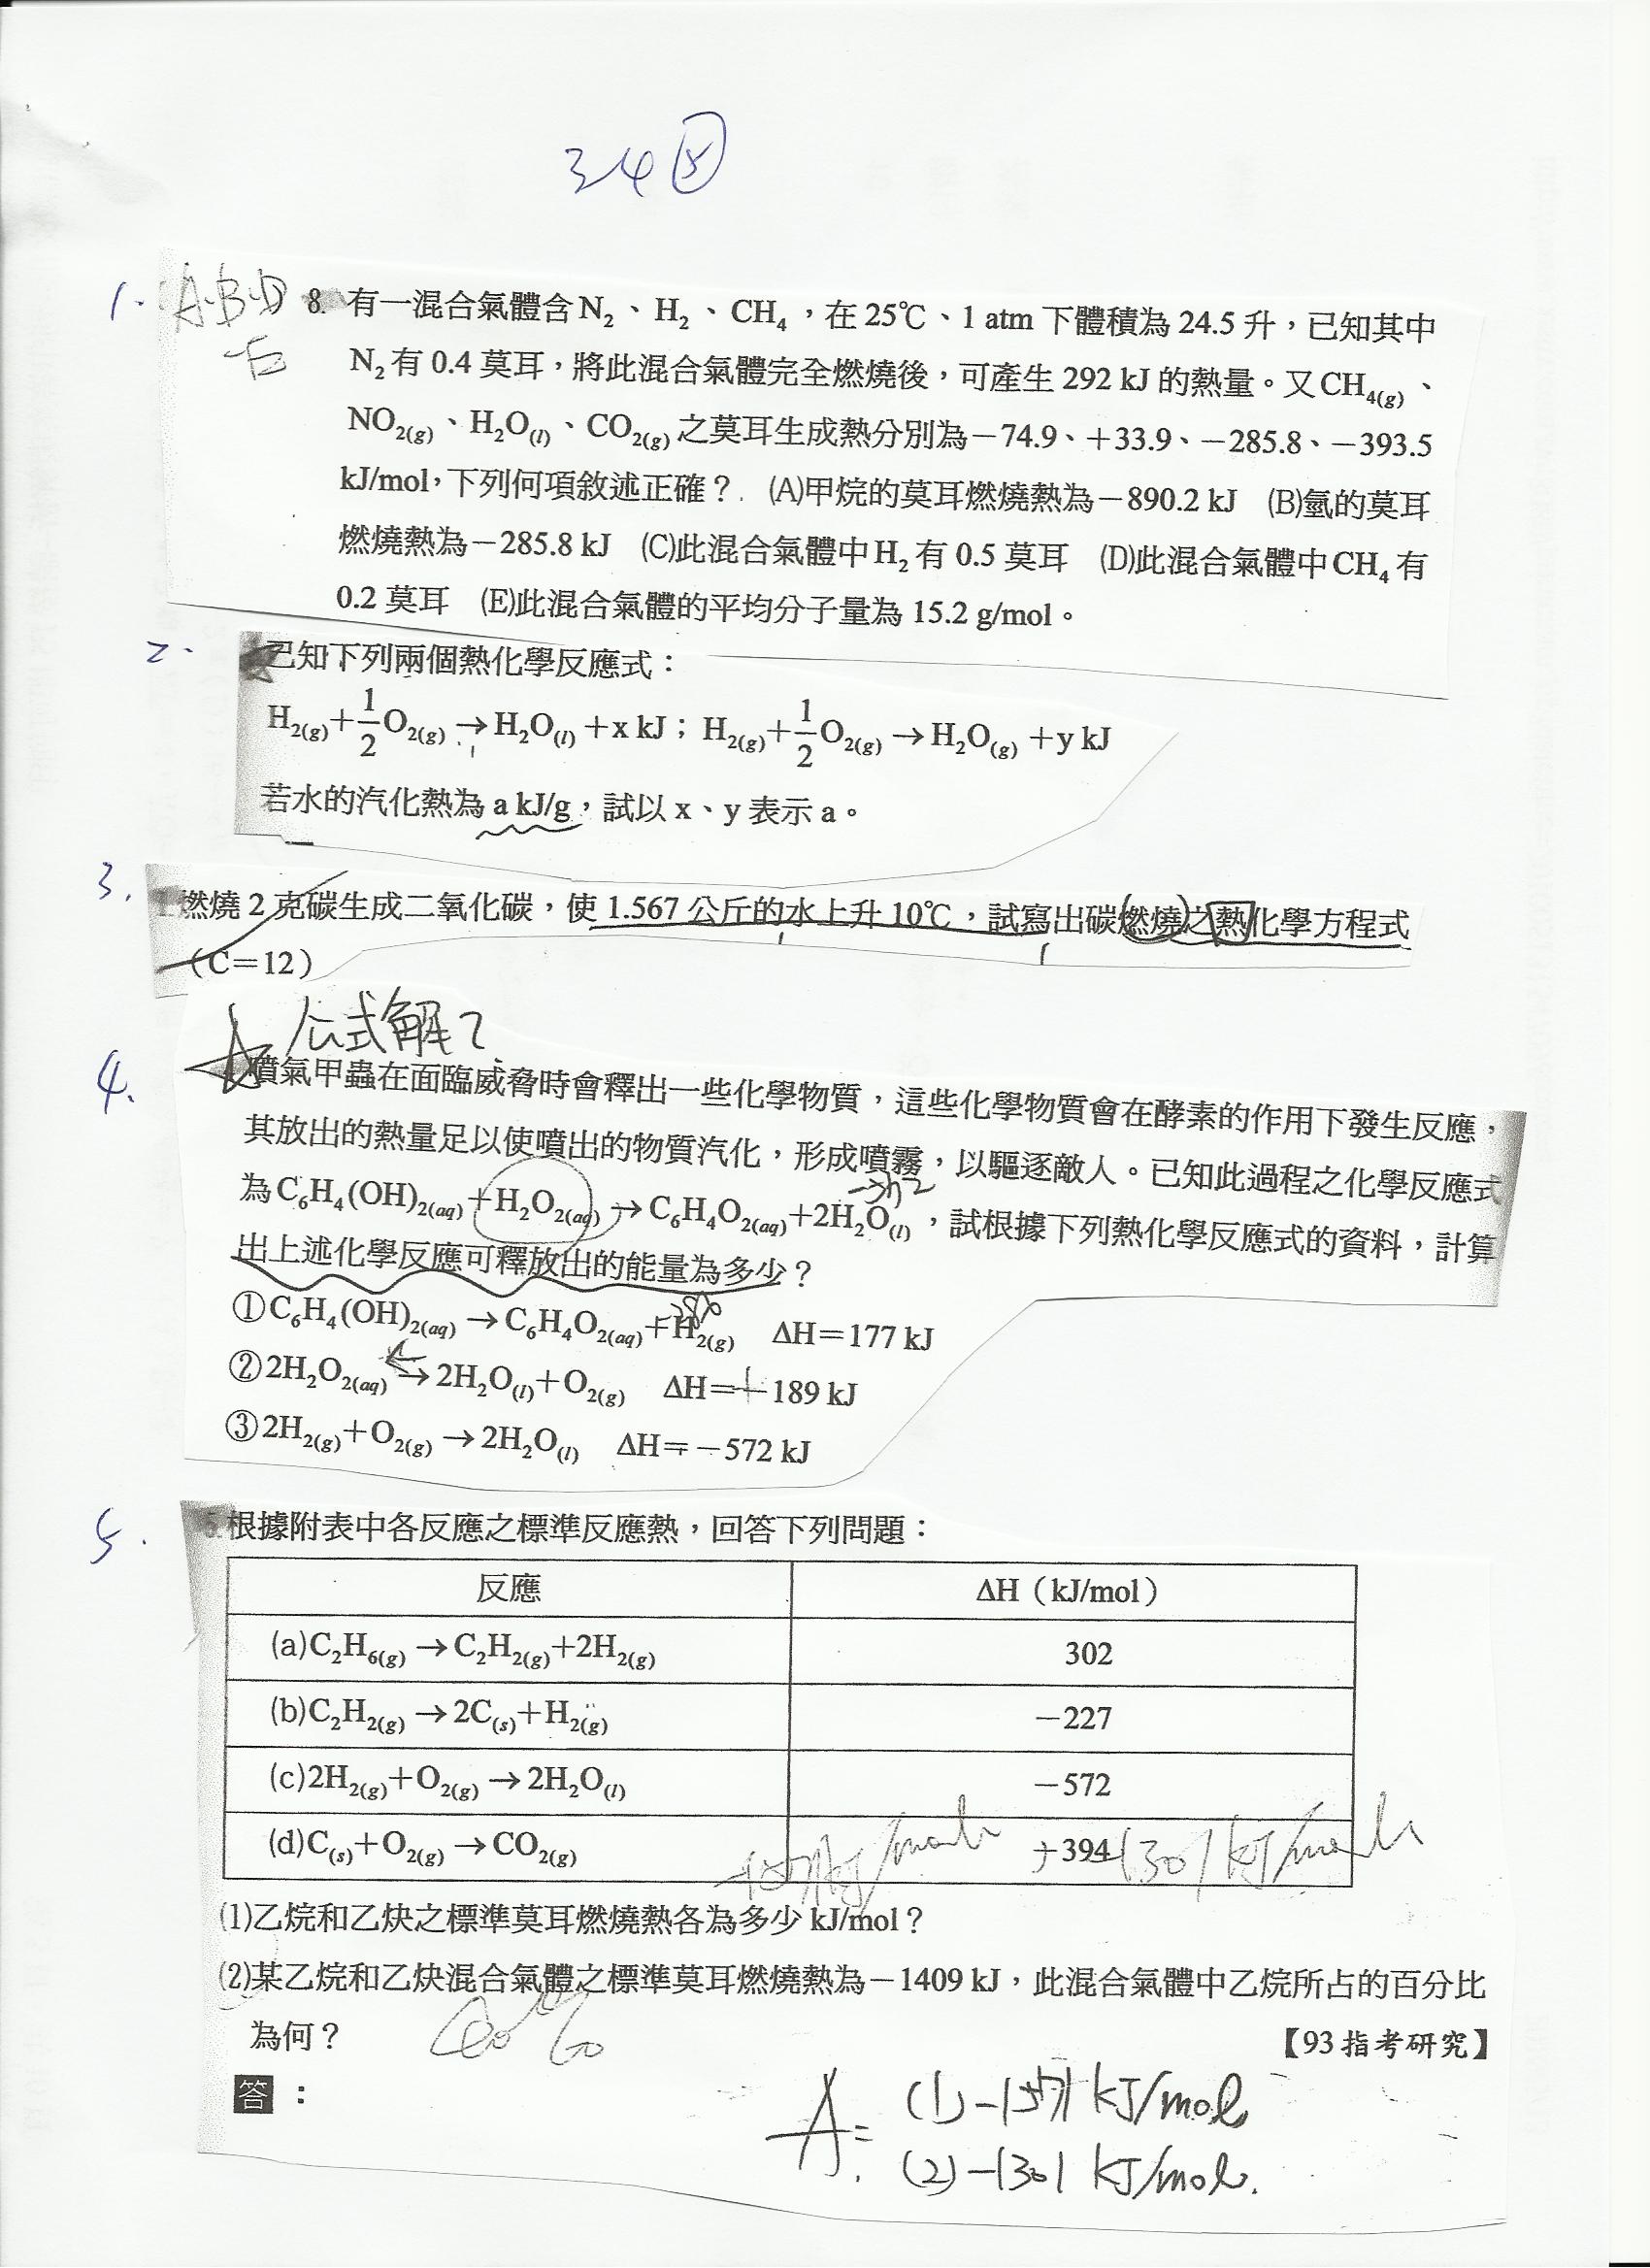 34
1. A.B.D E 8. 有一混合氣體含N₂、H₂、CH₄，在25℃、1 atm 下體積為 24.5 升，已知其中
N₂有 0.4 莫耳，將此混合氣體完全燃燒後，可產生 292 kJ 的熱量。又CH₄(g)、
NO₂(g)、H₂O(l)、CO₂(g)之莫耳生成熱分別為－74.9、＋33.9、－285.8、－393.5
kJ/mol，下列何項敘述正確？ (A)甲烷的莫耳燃燒熱為－890.2 kJ (B)氫的莫耳
燃燒熱為－285.8 kJ (C)此混合氣體中H₂有 0.5 莫耳 (D)此混合氣體中CH₄有
0.2 莫耳 (E)此混合氣體的平均分子量為 15.2 g/mol。
2. 已知下列兩個熱化學反應式：
H₂(g)+1/2O₂(g)→H₂O(l)+x kJ；H₂(g)+1/2O₂(g)→H₂O(g)+y kJ
若水的汽化熱為 a kJ/g，試以 x、y 表示 a。
3. 燃燒 2 克碳生成二氧化碳，使 1.567 公斤的水上升 10℃，試寫出碳燃燒之熱化學方程式
（C＝12）
公式解？
4. 噴氣甲蟲在面臨威脅時會釋出一些化學物質，這些化學物質會在酵素的作用下發生反應，
其放出的熱量足以使噴出的物質汽化，形成噴霧，以驅逐敵人。已知此過程之化學反應式
為C₆H₄(OH)₂(aq)+H₂O₂(aq)→C₆H₄O₂(aq)+2H₂O(l)，試根據下列熱化學反應式的資料，計算
出上述化學反應可釋放出的能量為多少？
①C₆H₄(OH)₂(aq)→C₆H₄O₂(aq)+H₂(g) ΔH＝177 kJ
②2H₂O₂(aq)→2H₂O(l)+O₂(g) ΔH＝－189 kJ
③2H₂(g)+O₂(g)→2H₂O(l) ΔH＝－572 kJ
5. 根據附表中各反應之標準反應熱，回答下列問題：
反應 ΔH（kJ/mol）
(a)C₂H₆(g)→C₂H₂(g)+2H₂(g) 302
(b)C₂H₂(g)→2C(s)+H₂(g) －227
(c)2H₂(g)+O₂(g)→2H₂O(l) －572
(d)C(s)+O₂(g)→CO₂(g) －394
-1571 kJ/mol -1301 kJ/mol
(1)乙烷和乙炔之標準莫耳燃燒熱各為多少 kJ/mol？
(2)某乙烷和乙炔混合氣體之標準莫耳燃燒熱為－1409 kJ，此混合氣體中乙烷所占的百分比
為何？ 【93 指考研究】
答：
A: (1) -1571 kJ/mol
(2) -1301 kJ/mol.